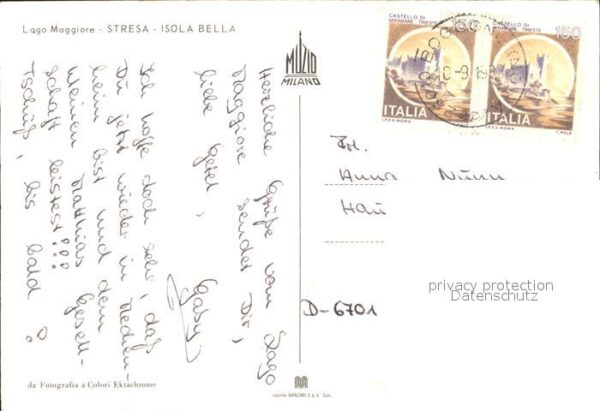 Lago Maggiore - STRESA - ISOLA BELLA
MUZIO
MILANO
CASTELLO DI
MIRAMARE TRIESTE
CASTELLO DI
MIRAMARE TRIESTE
150
ITALIA
ITALIA
Herzliche Grüße vom Lago
Maggiore sendet Dir,
liebe
Gaby
Ich hoffe doch sehr, daß
Du jetzt wieder in
heim bist und dem
Weinen Matthias Gesell-
schaft leistest!!!
Tschüß, bis bald!
Anna Nunn
D-6701
privacy protection
Datenschutz
da Fotografia a Colori Ektachrome